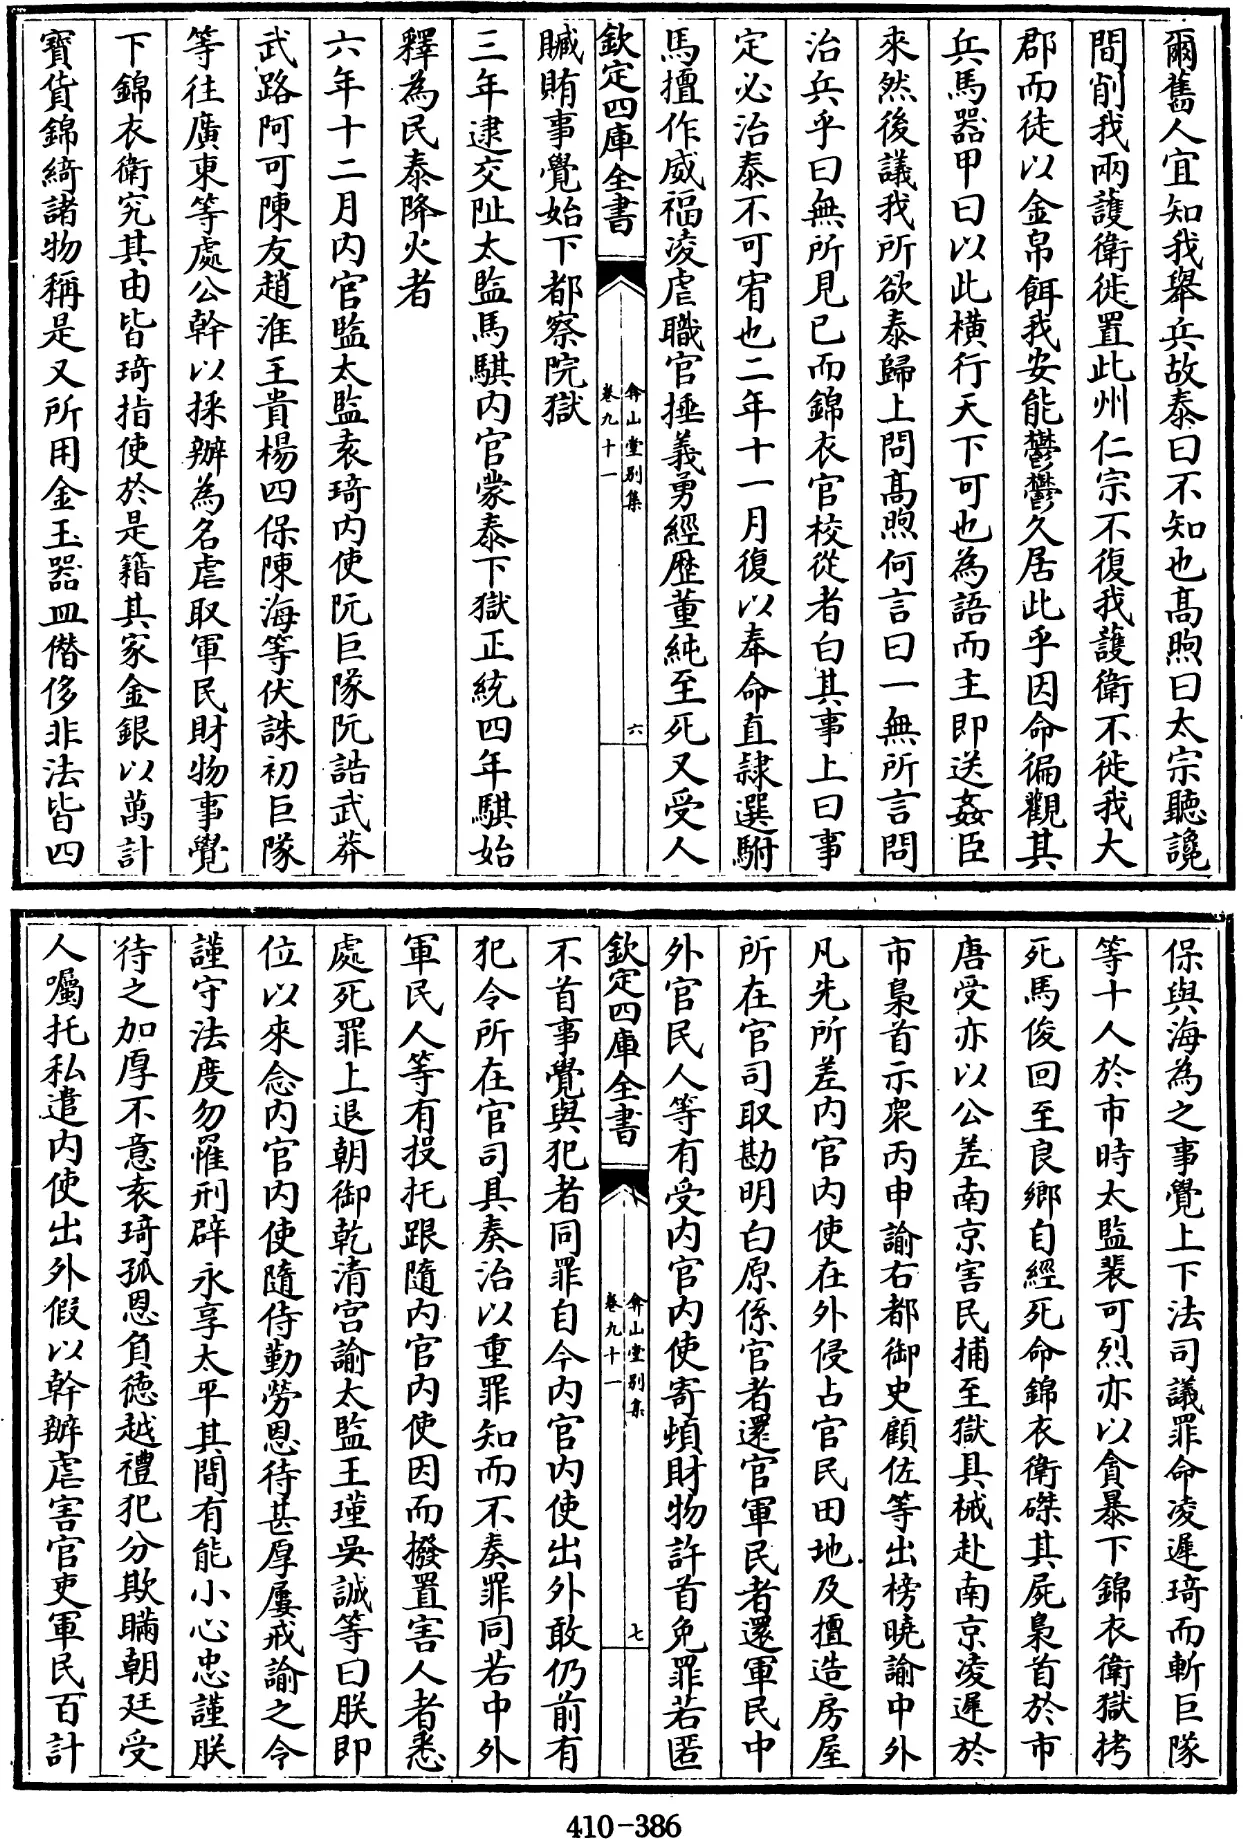 爾舊人宜知我舉兵故泰曰不知也髙煦曰太宗聽讒
間削我兩護衛徙置此州仁宗不復我護衛不徙我大
郡而徒以金帛餌我安能鬱鬱久居此乎因命徧觀其
兵馬器甲曰以此横行天下可也為語而主即送姦臣
來然後議我所欲泰歸上問髙煦何言曰一無所言問
治兵乎曰無所見已而錦衣官校從者白其事上曰事
定必治泰不可宥也二年十一月復以奉命直隷選駙
馬擅作威福凌虐職官捶義勇經歴董純至死又受人
欽定四庫全書
弇山堂别集
卷九十一
六
贓賄事覺始下都察院獄
三年逮交阯太監馬騏内官蒙泰下獄正統四年騏始
釋為民泰降火者
六年十二月内官監太監袁琦内使阮巨隊阮誥武莽
武路阿可陳友趙淮王貴楊四保陳海等伏誅初巨隊
等往廣東等處公幹以採辦為名虐取軍民財物事覺
下錦衣衛究其由皆琦指使於是籍其家金銀以萬計
寳貨錦綺諸物稱是又所用金玉器皿僭侈非法皆四
保與海為之事覺上下法司議罪命凌遲琦而斬巨隊
等十人於市時太監裴可烈亦以貪暴下錦衣衛獄拷
死馬俊回至良鄉自經死命錦衣衛磔其屍梟首於市
唐受亦以公差南京害民捕至獄具械赴南京凌遲於
市梟首示衆丙申諭右都御史顧佐等出榜曉諭中外
凡先所差内官内使在外侵占官民田地及擅造房屋
所在官司取勘明白原係官者還官軍民者還軍民中
外官民人等有受内官内使寄頓財物許首免罪若匿
欽定四庫全書
弇山堂别集
卷九十一
七
不首事覺與犯者同罪自今内官内使出外敢仍前有
犯令所在官司具奏治以重罪知而不奏罪同若中外
軍民人等有投托跟隨内官内使因而撥置害人者悉
處死罪上退朝御乾清宫諭太監王瑾吳誠等曰朕即
位以來念内官内使隨侍勤勞恩待甚厚屢戒諭之令
謹守法度勿罹刑辟永享太平其間有能小心忠謹朕
待之加厚不意袁琦孤恩負徳越禮犯分欺瞞朝廷受
人囑托私遣内使出外假以幹辦虐害官吏軍民百計
410-386